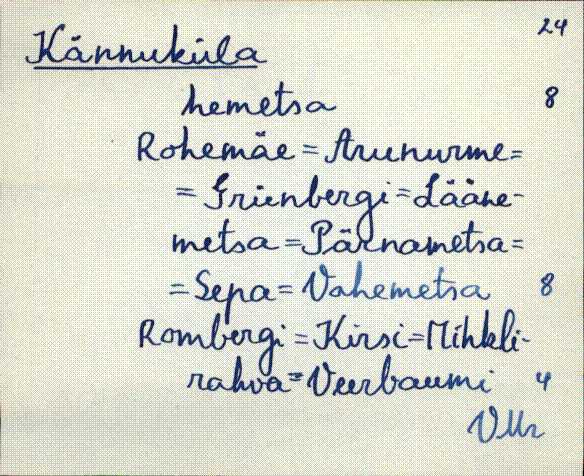 24
Kännuküla
hemetsa 8
Rohemäe = Arunurme =
= Grünbergi = Lääne-
metsa = Pärnametsa =
= Sepa = Vahemetsa 8
Rombergi = Kirsi = Mihkli-
rahva = Veerbaumi 4
VMr